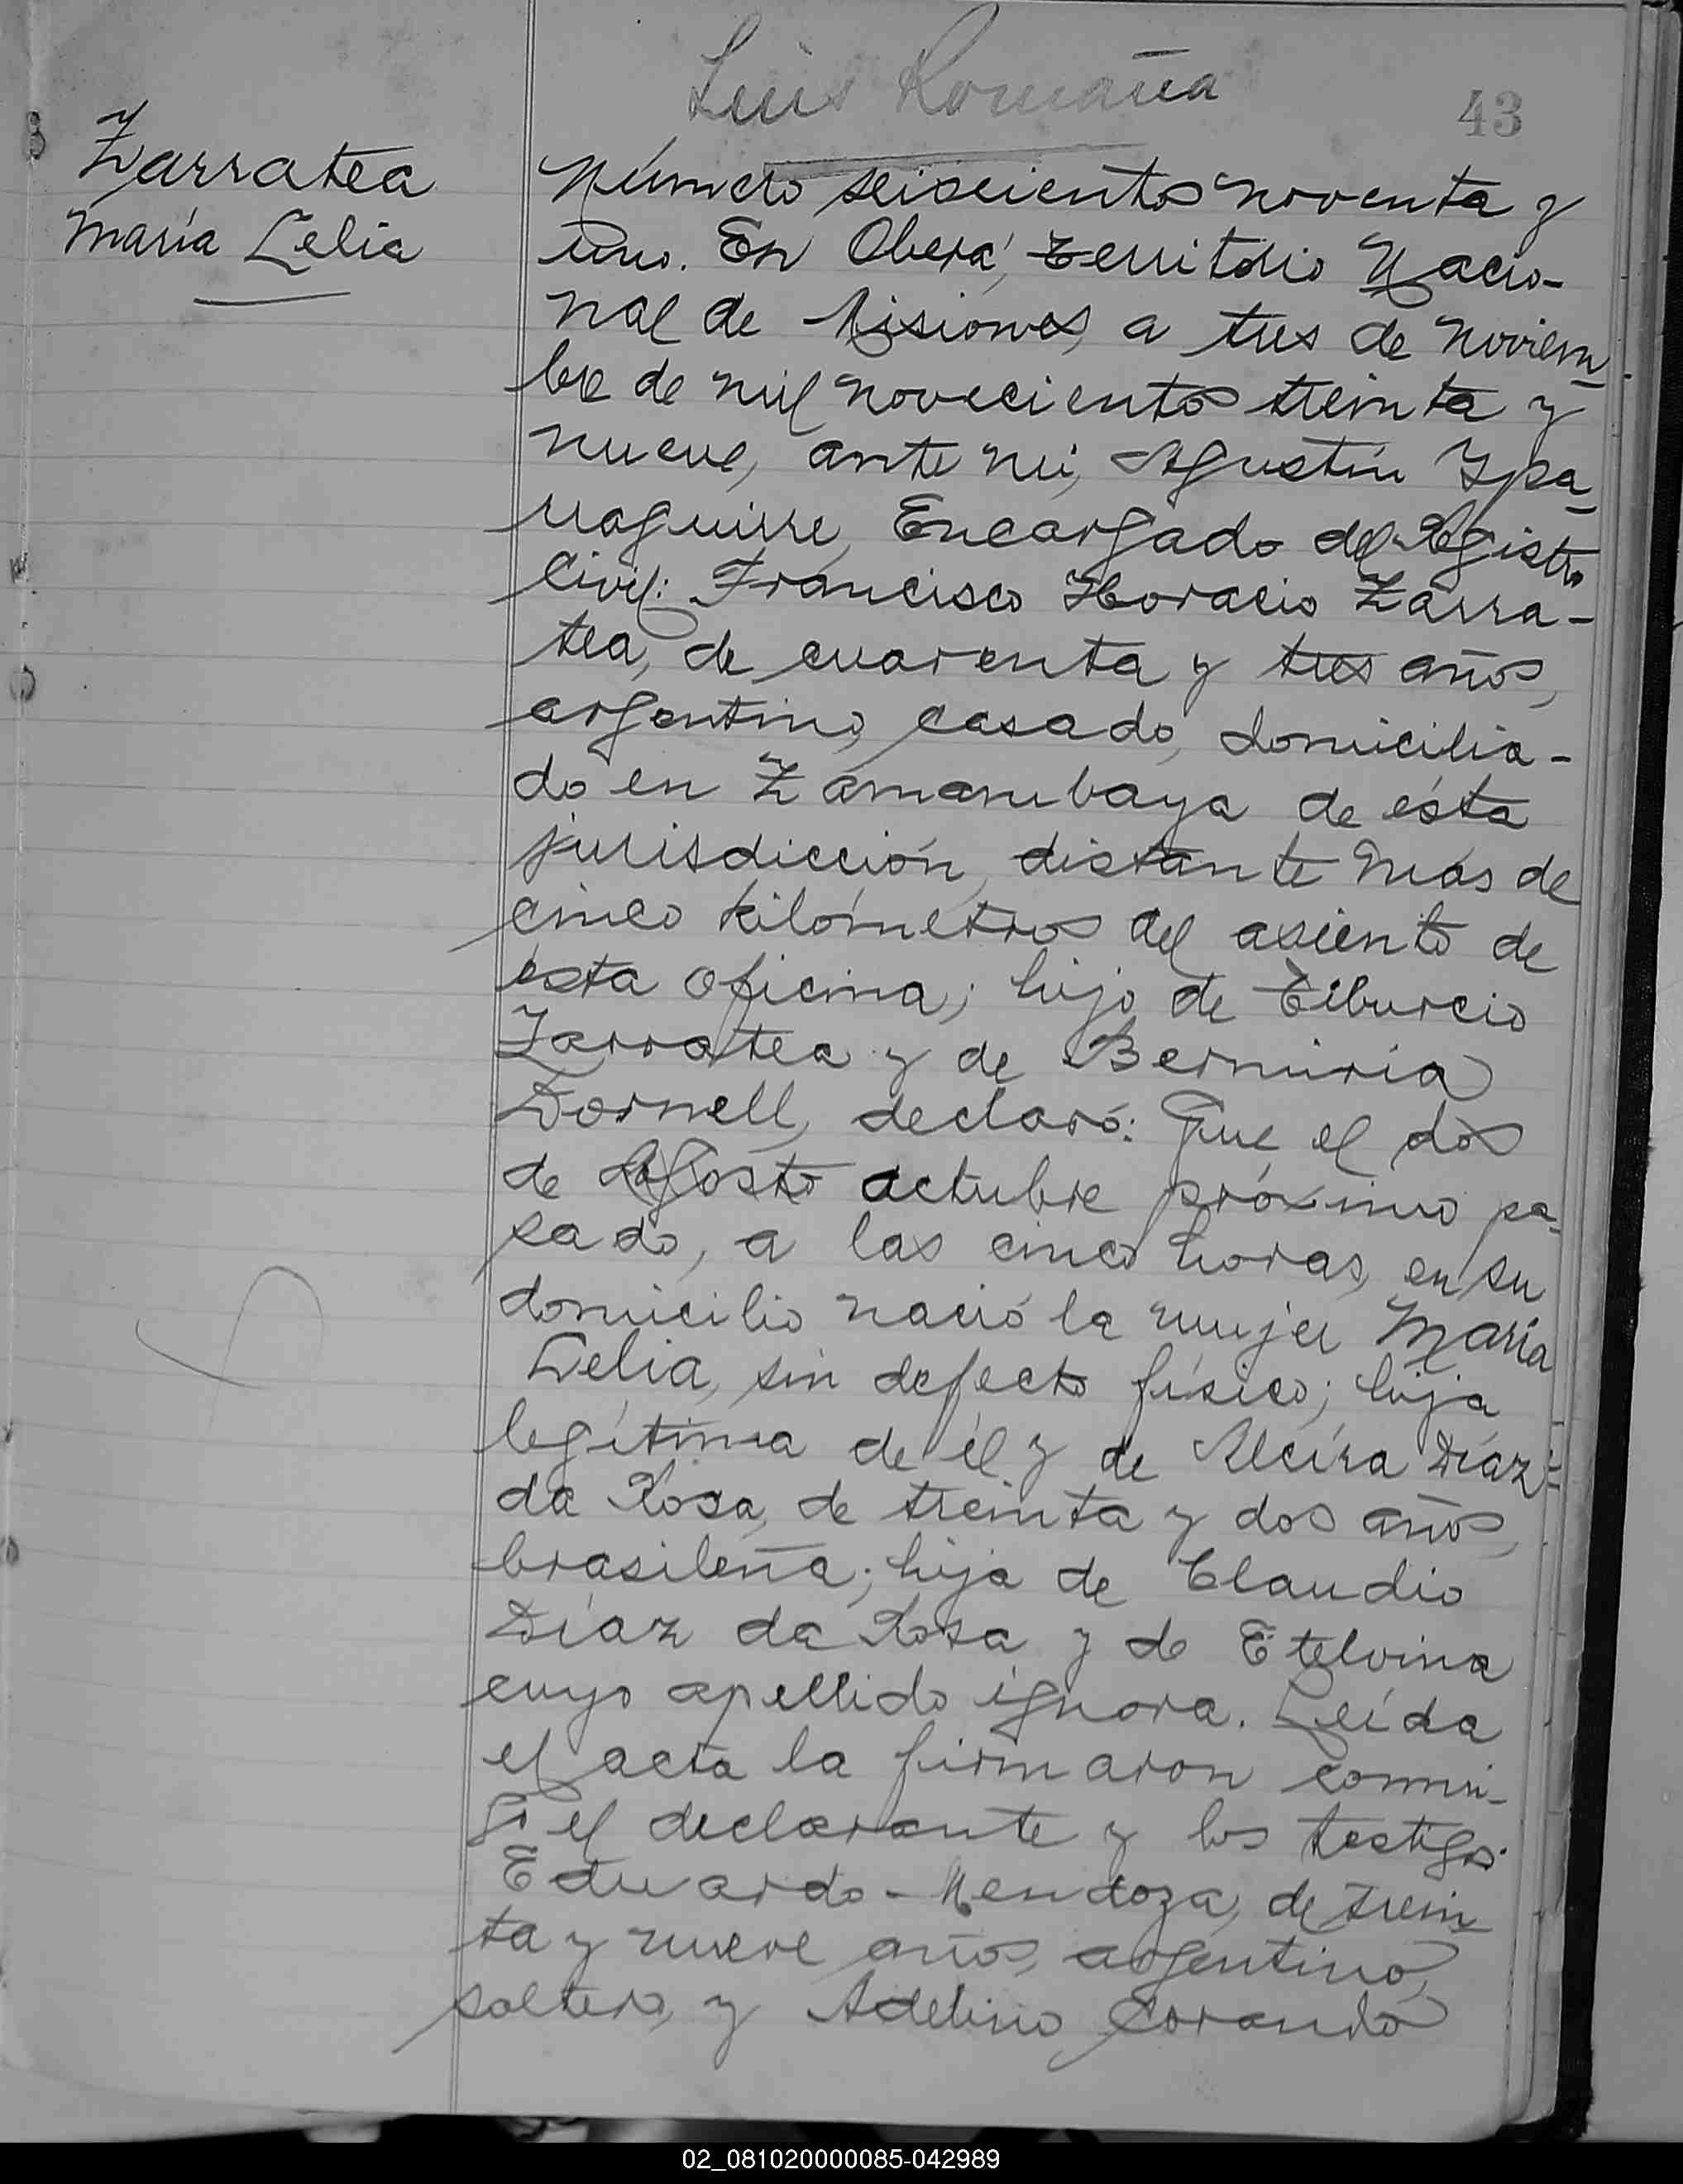 Luis Romaña
43
Zarratea
María Lelia
Número seiscientos noventa y
uno. En Oberá, territorio Nacio-
nal de Misiones, a tres de noviem-
bre de mil novecientos treinta y
nueve, ante mi, Agustín Ypa-
rraguirre, Encargado del Registro
Civil: Francisco Horacio Zarra-
tea, de cuarenta y tres años,
argentino, casado, domicilia-
do en Zamambaya de ésta
jurisdicción, distante más de
cinco kilómetros del asiento de
ésta oficina; hijo de Tiburcio
Zarratea y de Berniria
Dornell, declaró: Que el dos
de Agosto actubre próximo pa-
sado, a las cinco horas, en su
domicilio nació la mujer María
Lelia, sin defecto físico; hija
legítima de él y de Alcira Díaz
da Rosa, de treinta y dos años,
brasileña; hija de Claudio
Díaz da Rosa y de Etelvina
cuyo apellido ignora. Leída
el acta la firmaron conmi-
go el declarante y los testigos:
Eduardo Mendoza, de trein
ta y nueve años, argentino,
soltero, y Adelino
02_081020000085-042989